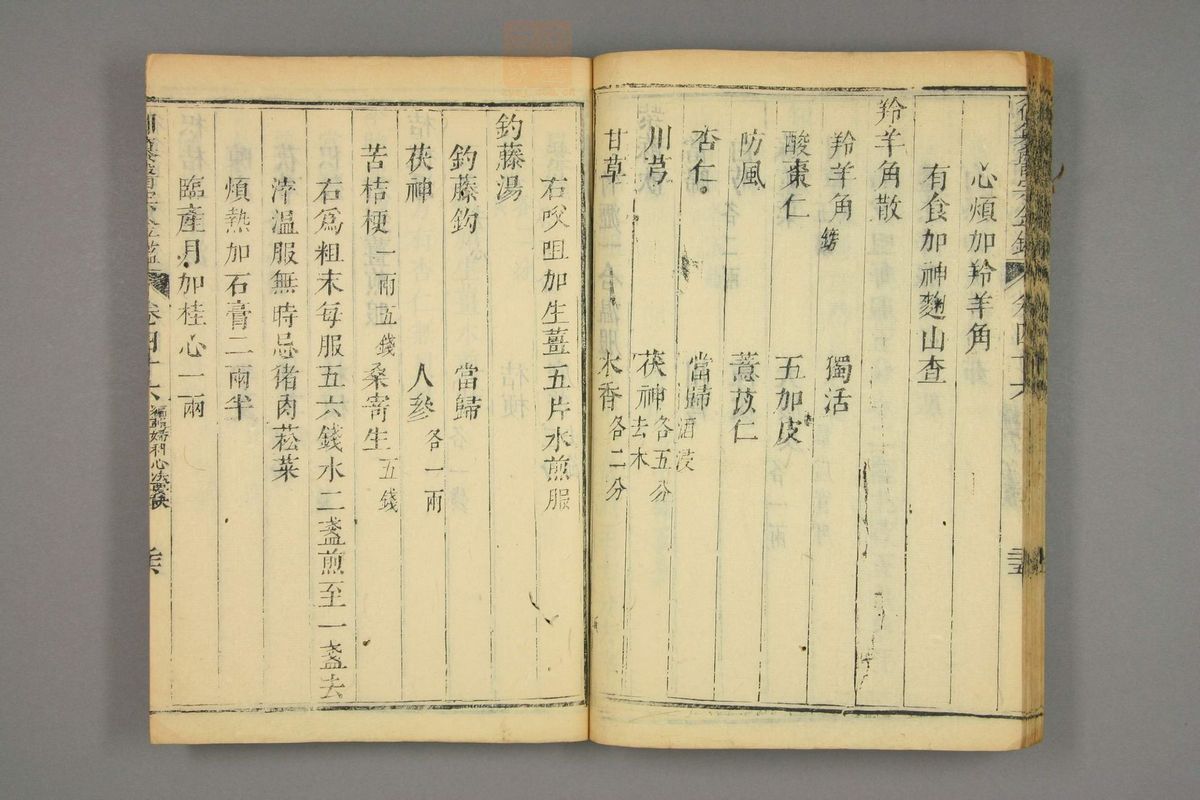 心煩加羚羊角
有食加神麯山查
羚羊角散
羚羊角鎊 獨活
酸棗仁 五加皮
防風 薏苡仁
杏仁 當歸酒浸
川芎 茯神去木各五分
甘草 木香各二分
右㕮咀加生薑五片水煎服
釣藤湯
釣藤鈎 當歸
茯神 人參各一兩
苦桔梗一兩五錢 桑寄生五錢
右爲粗末每服五六錢水二盞煎至一盞去
滓溫服無時忌猪肉菘菜
煩熱加石膏二兩半
臨產月加桂心一兩
卷四十六 編輯婦科心法要訣 三六